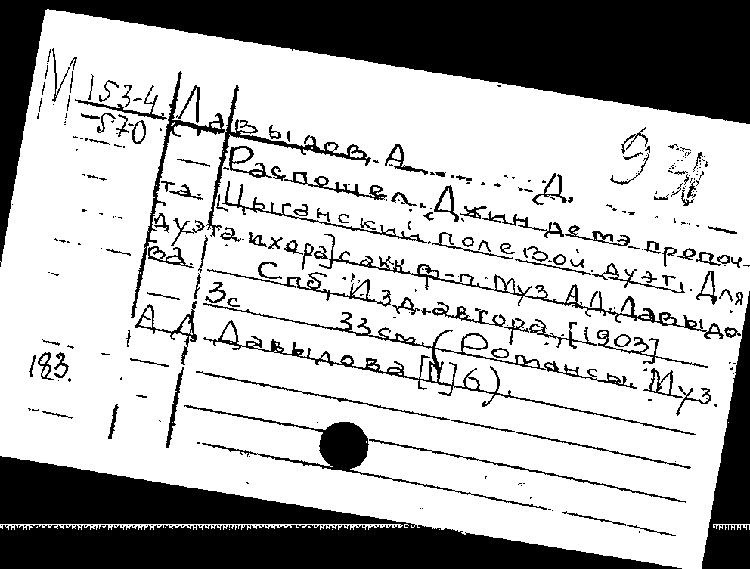 М 153-4
-570
Давыдов, А. Д.
931
Распошел. Джин дета пропоч-
та. Цыганский полевой дуэт. Для
дуэта и хора] с акк. ф-п. Муз. А.Д. Давыдо-
ва. Спб, Изд. автора, [1903]
3с. 33см. (Романсы. Муз.
А. Д. Давыдова [N] 6).
183.